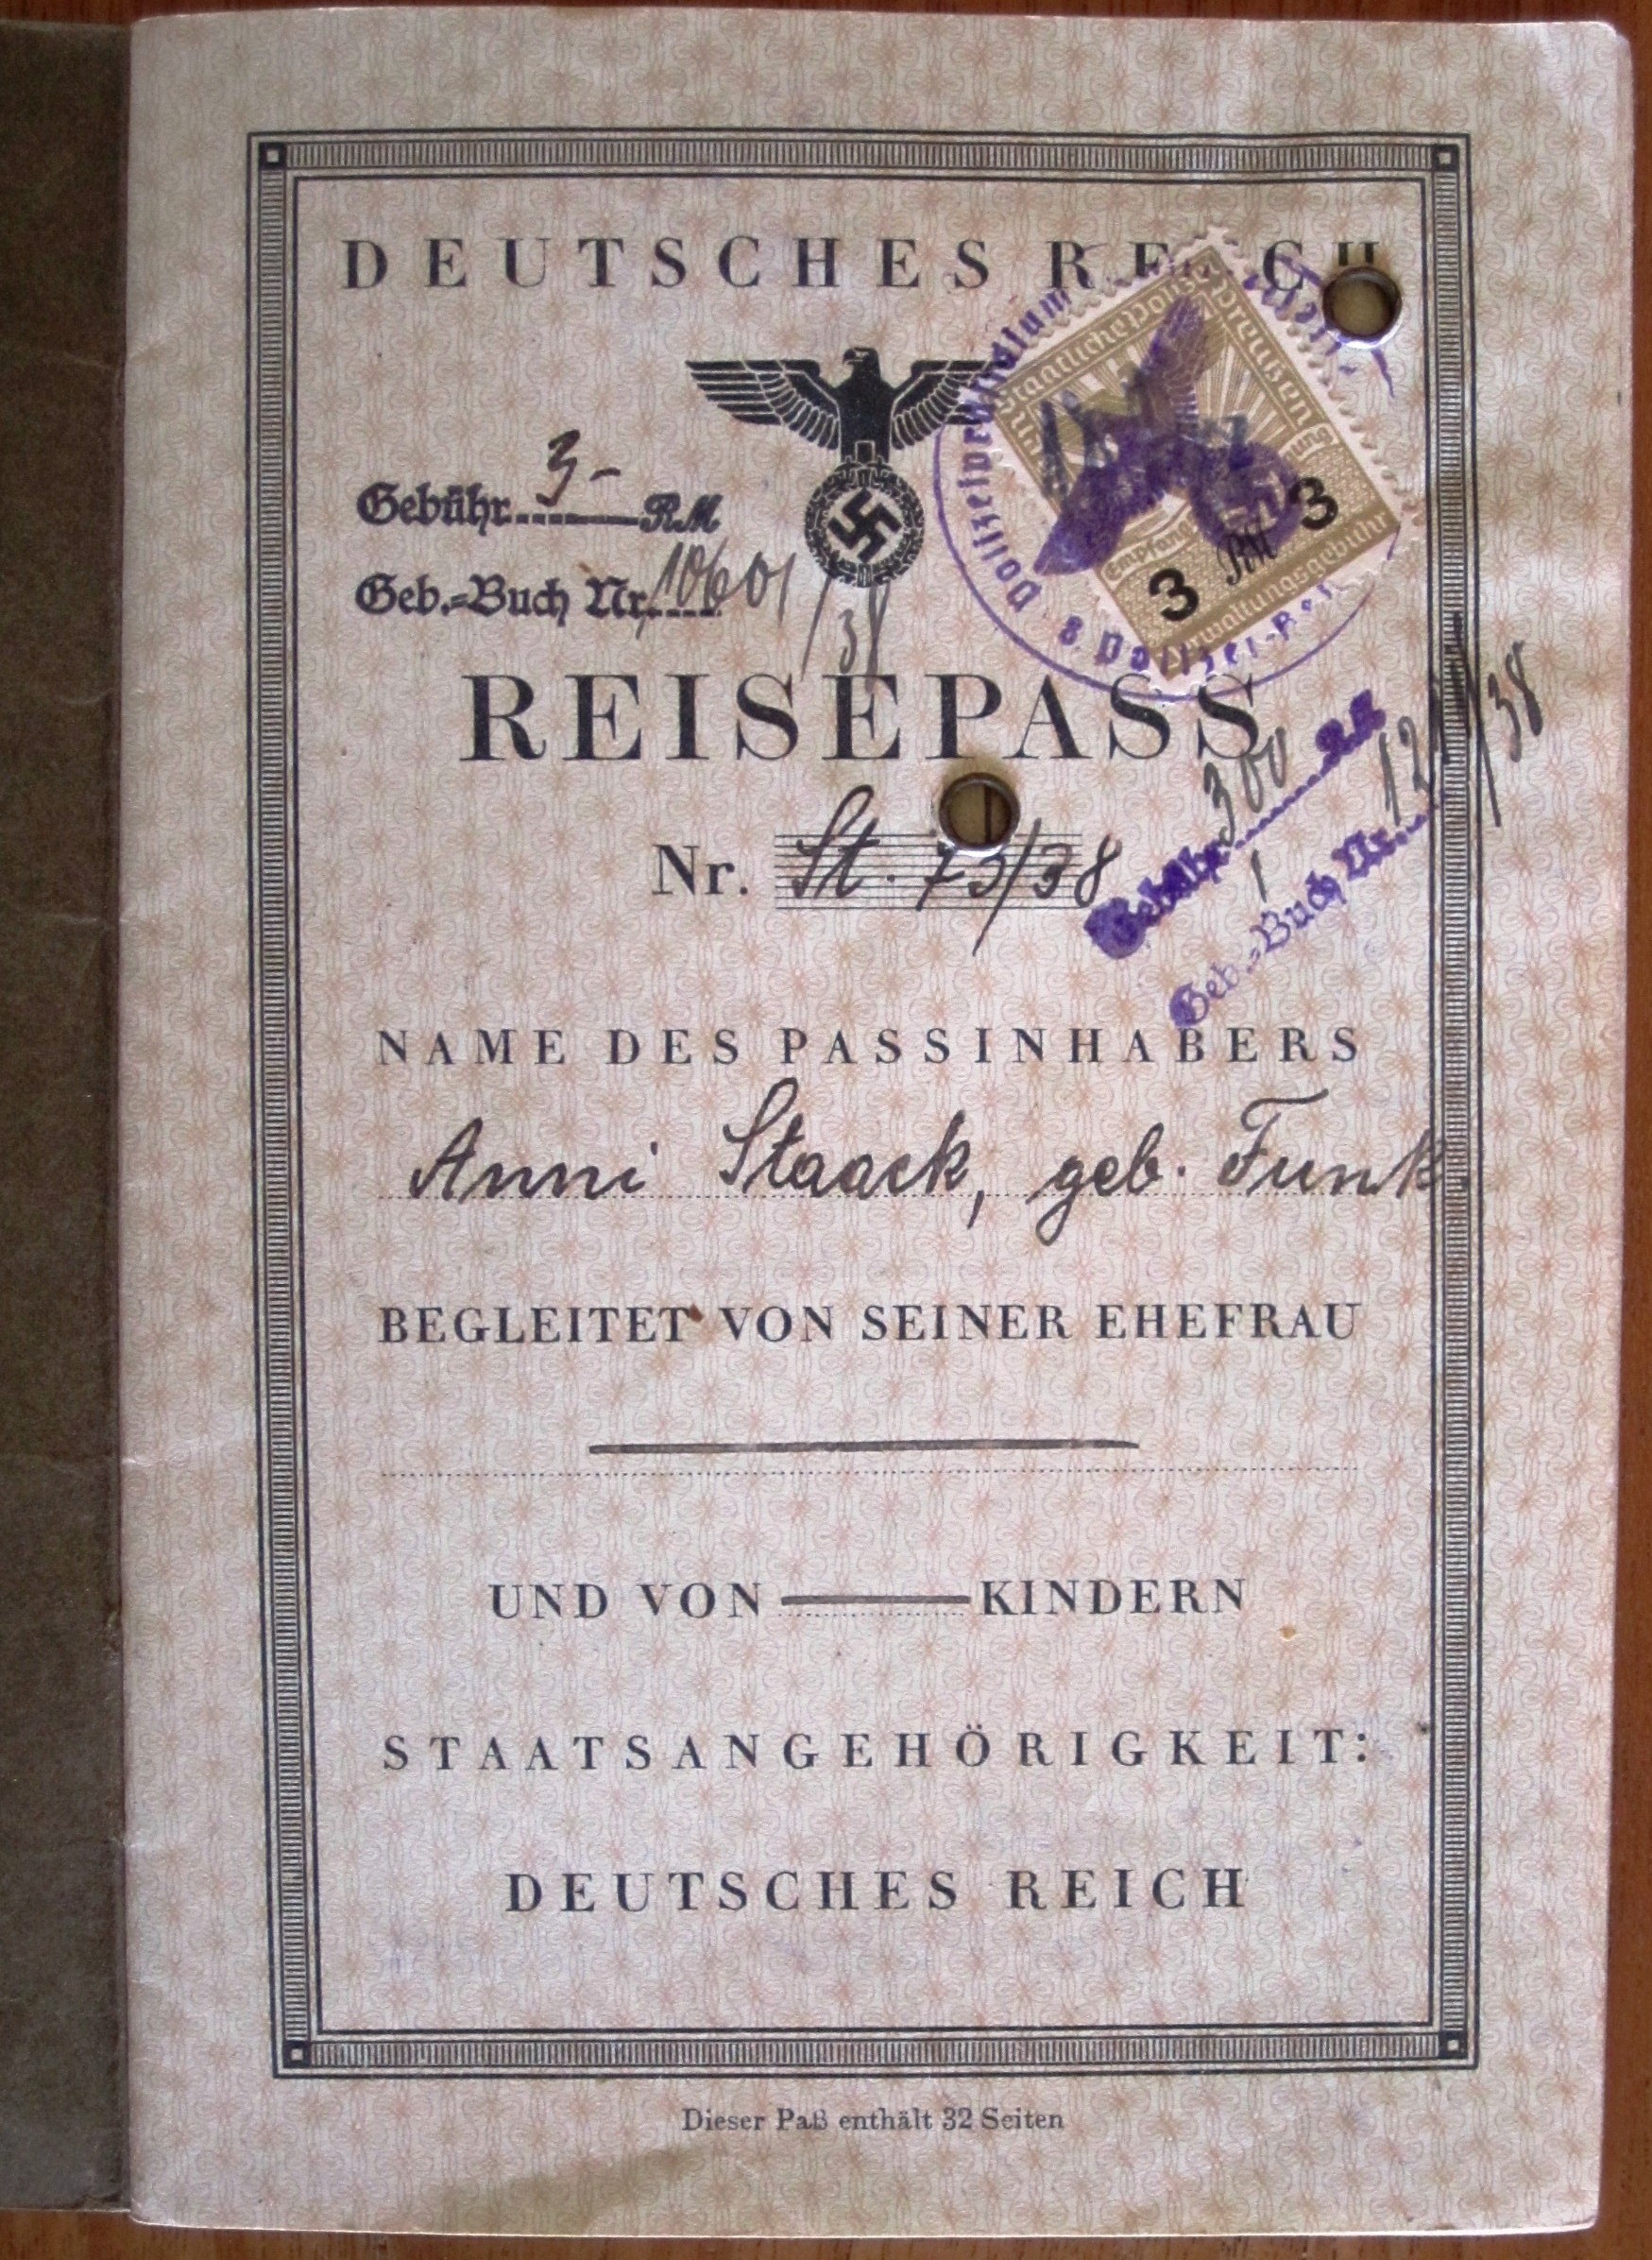 DEUTSCHES REICH
Gebühr 3 - RM
Geb.=Buch Nr. 10601/38
Staatliche Polizei Preußen
3 RM 3
Verwaltungsgebühr
Polizei
8. Polizei-
REISEPASS
Nr. St. 73/38
Gebühr 300 RM
Geb.=Buch Nr. /38
NAME DES PASSINHABERS
Anni Staack, geb. Funk
BEGLEITET VON SEINER EHEFRAU
UND VON KINDERN
STAATSANGEHÖRIGKEIT:
DEUTSCHES REICH
Dieser Paß enthält 32 Seiten